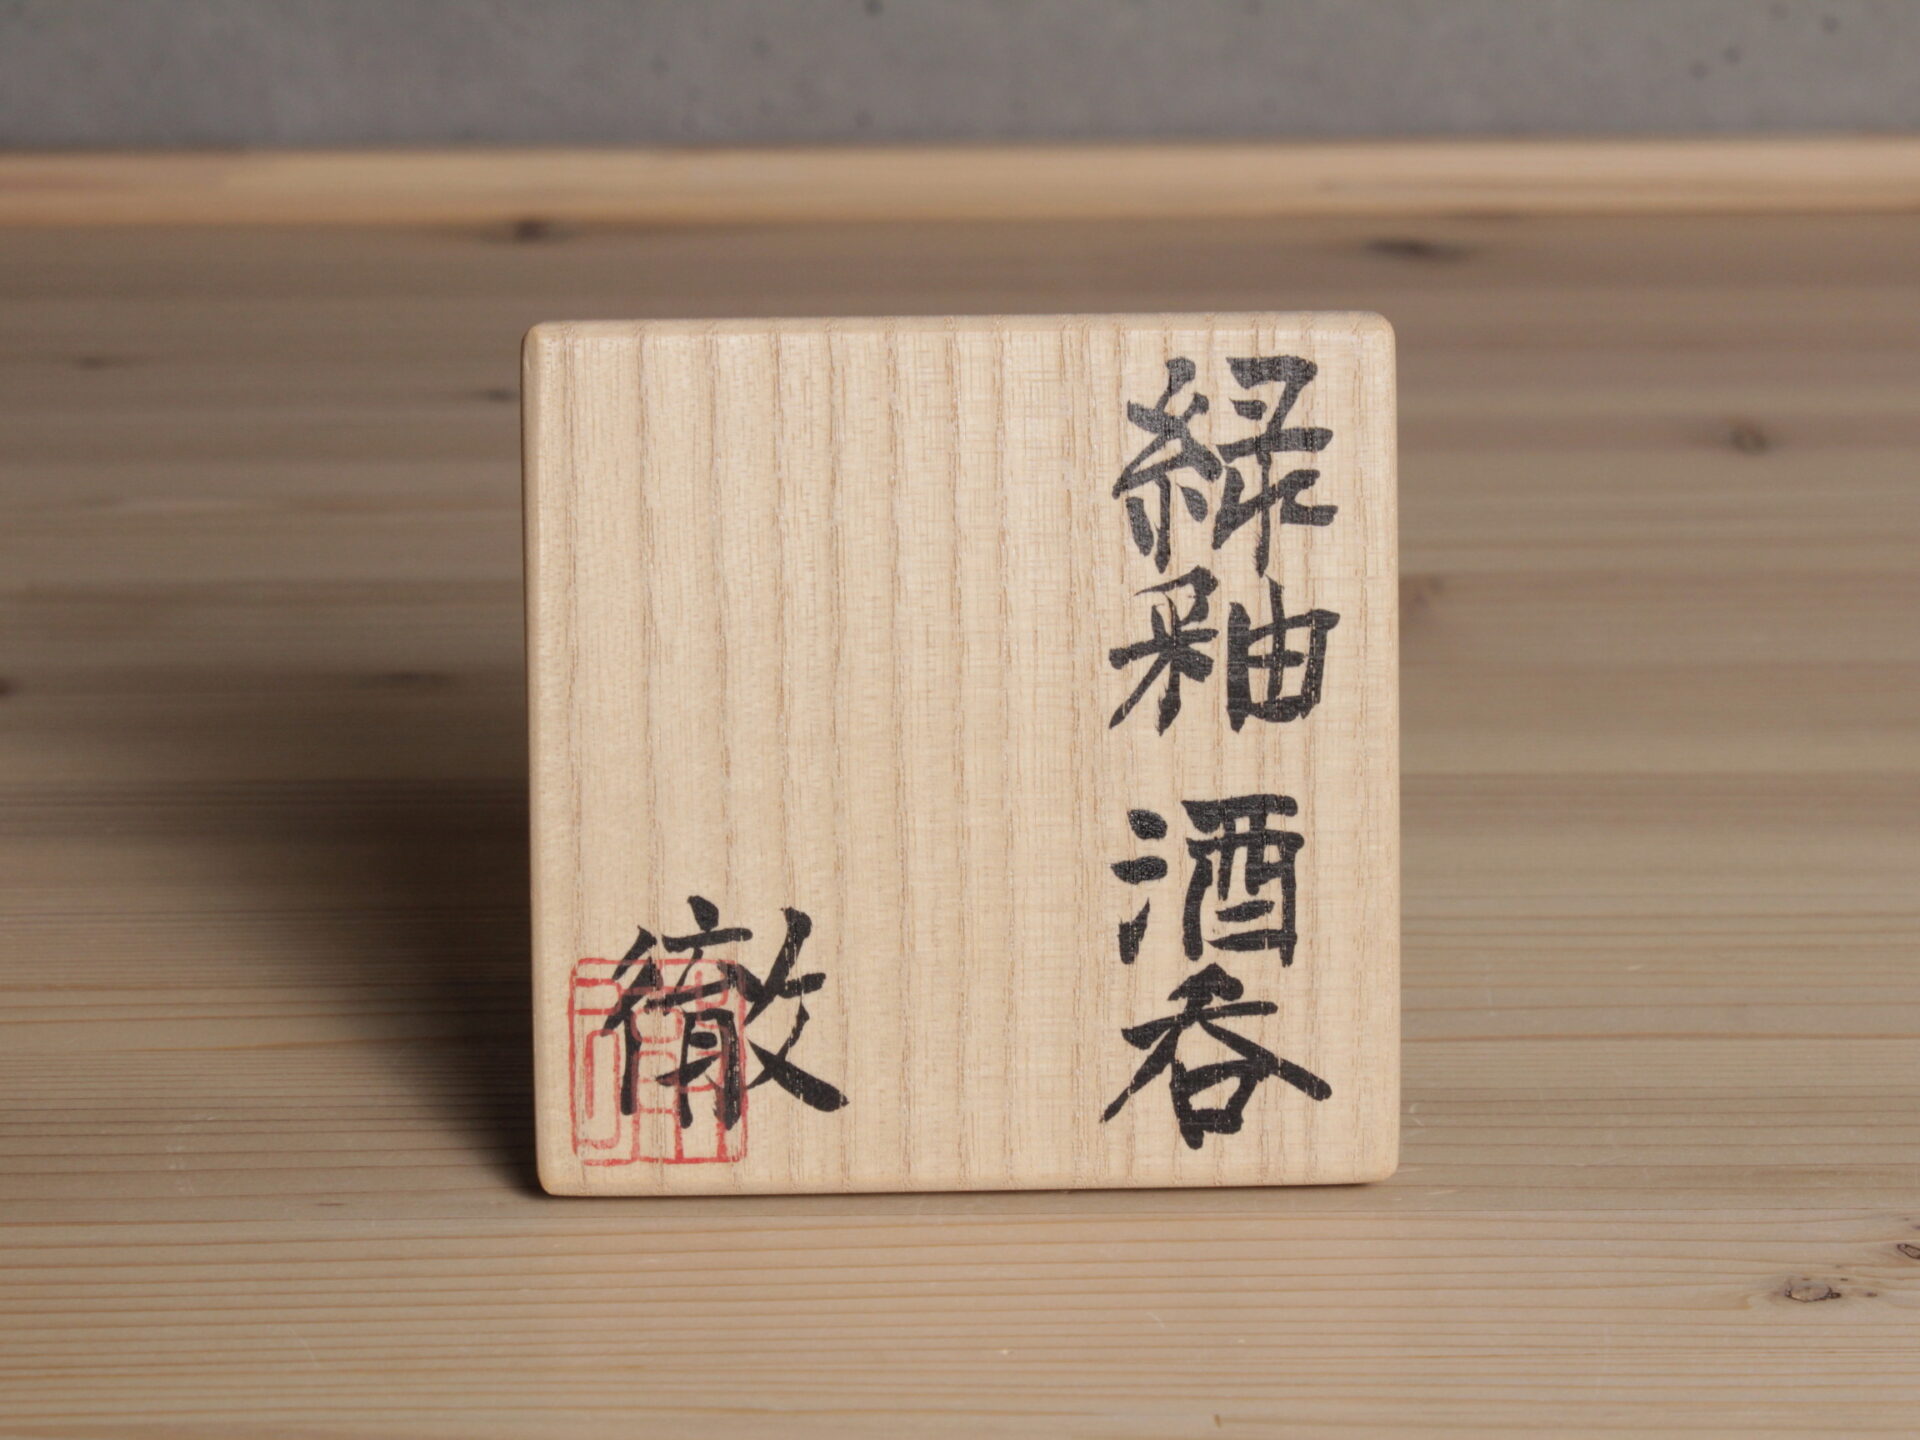 緑釉 酒呑
徹